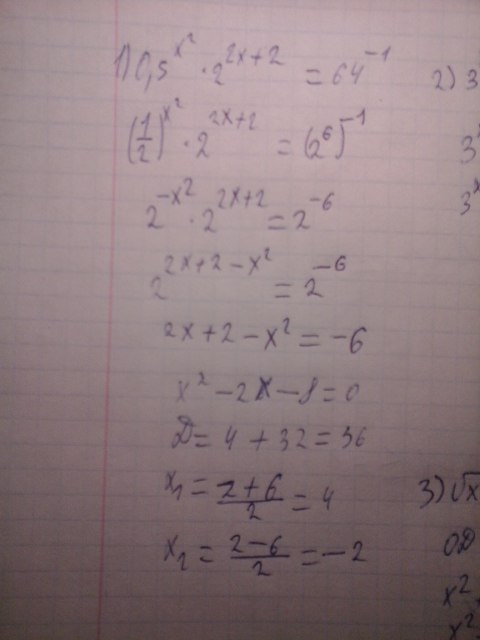 1) 0,5^{x^2} · 2^{2x+2} = 64^{-1}
(1/2)^{x^2} · 2^{2x+2} = (2^6)^{-1}
2^{-x^2} · 2^{2x+2} = 2^{-6}
2^{2x+2-x^2} = 2^{-6}
2x+2-x^2 = -6
x^2-2x-8=0
D=4+32=36
x_1 = (2+6)/2 = 4
x_2 = (2-6)/2 = -2
2) 3
3
3^x
3) √x
OD
x^2
x^2